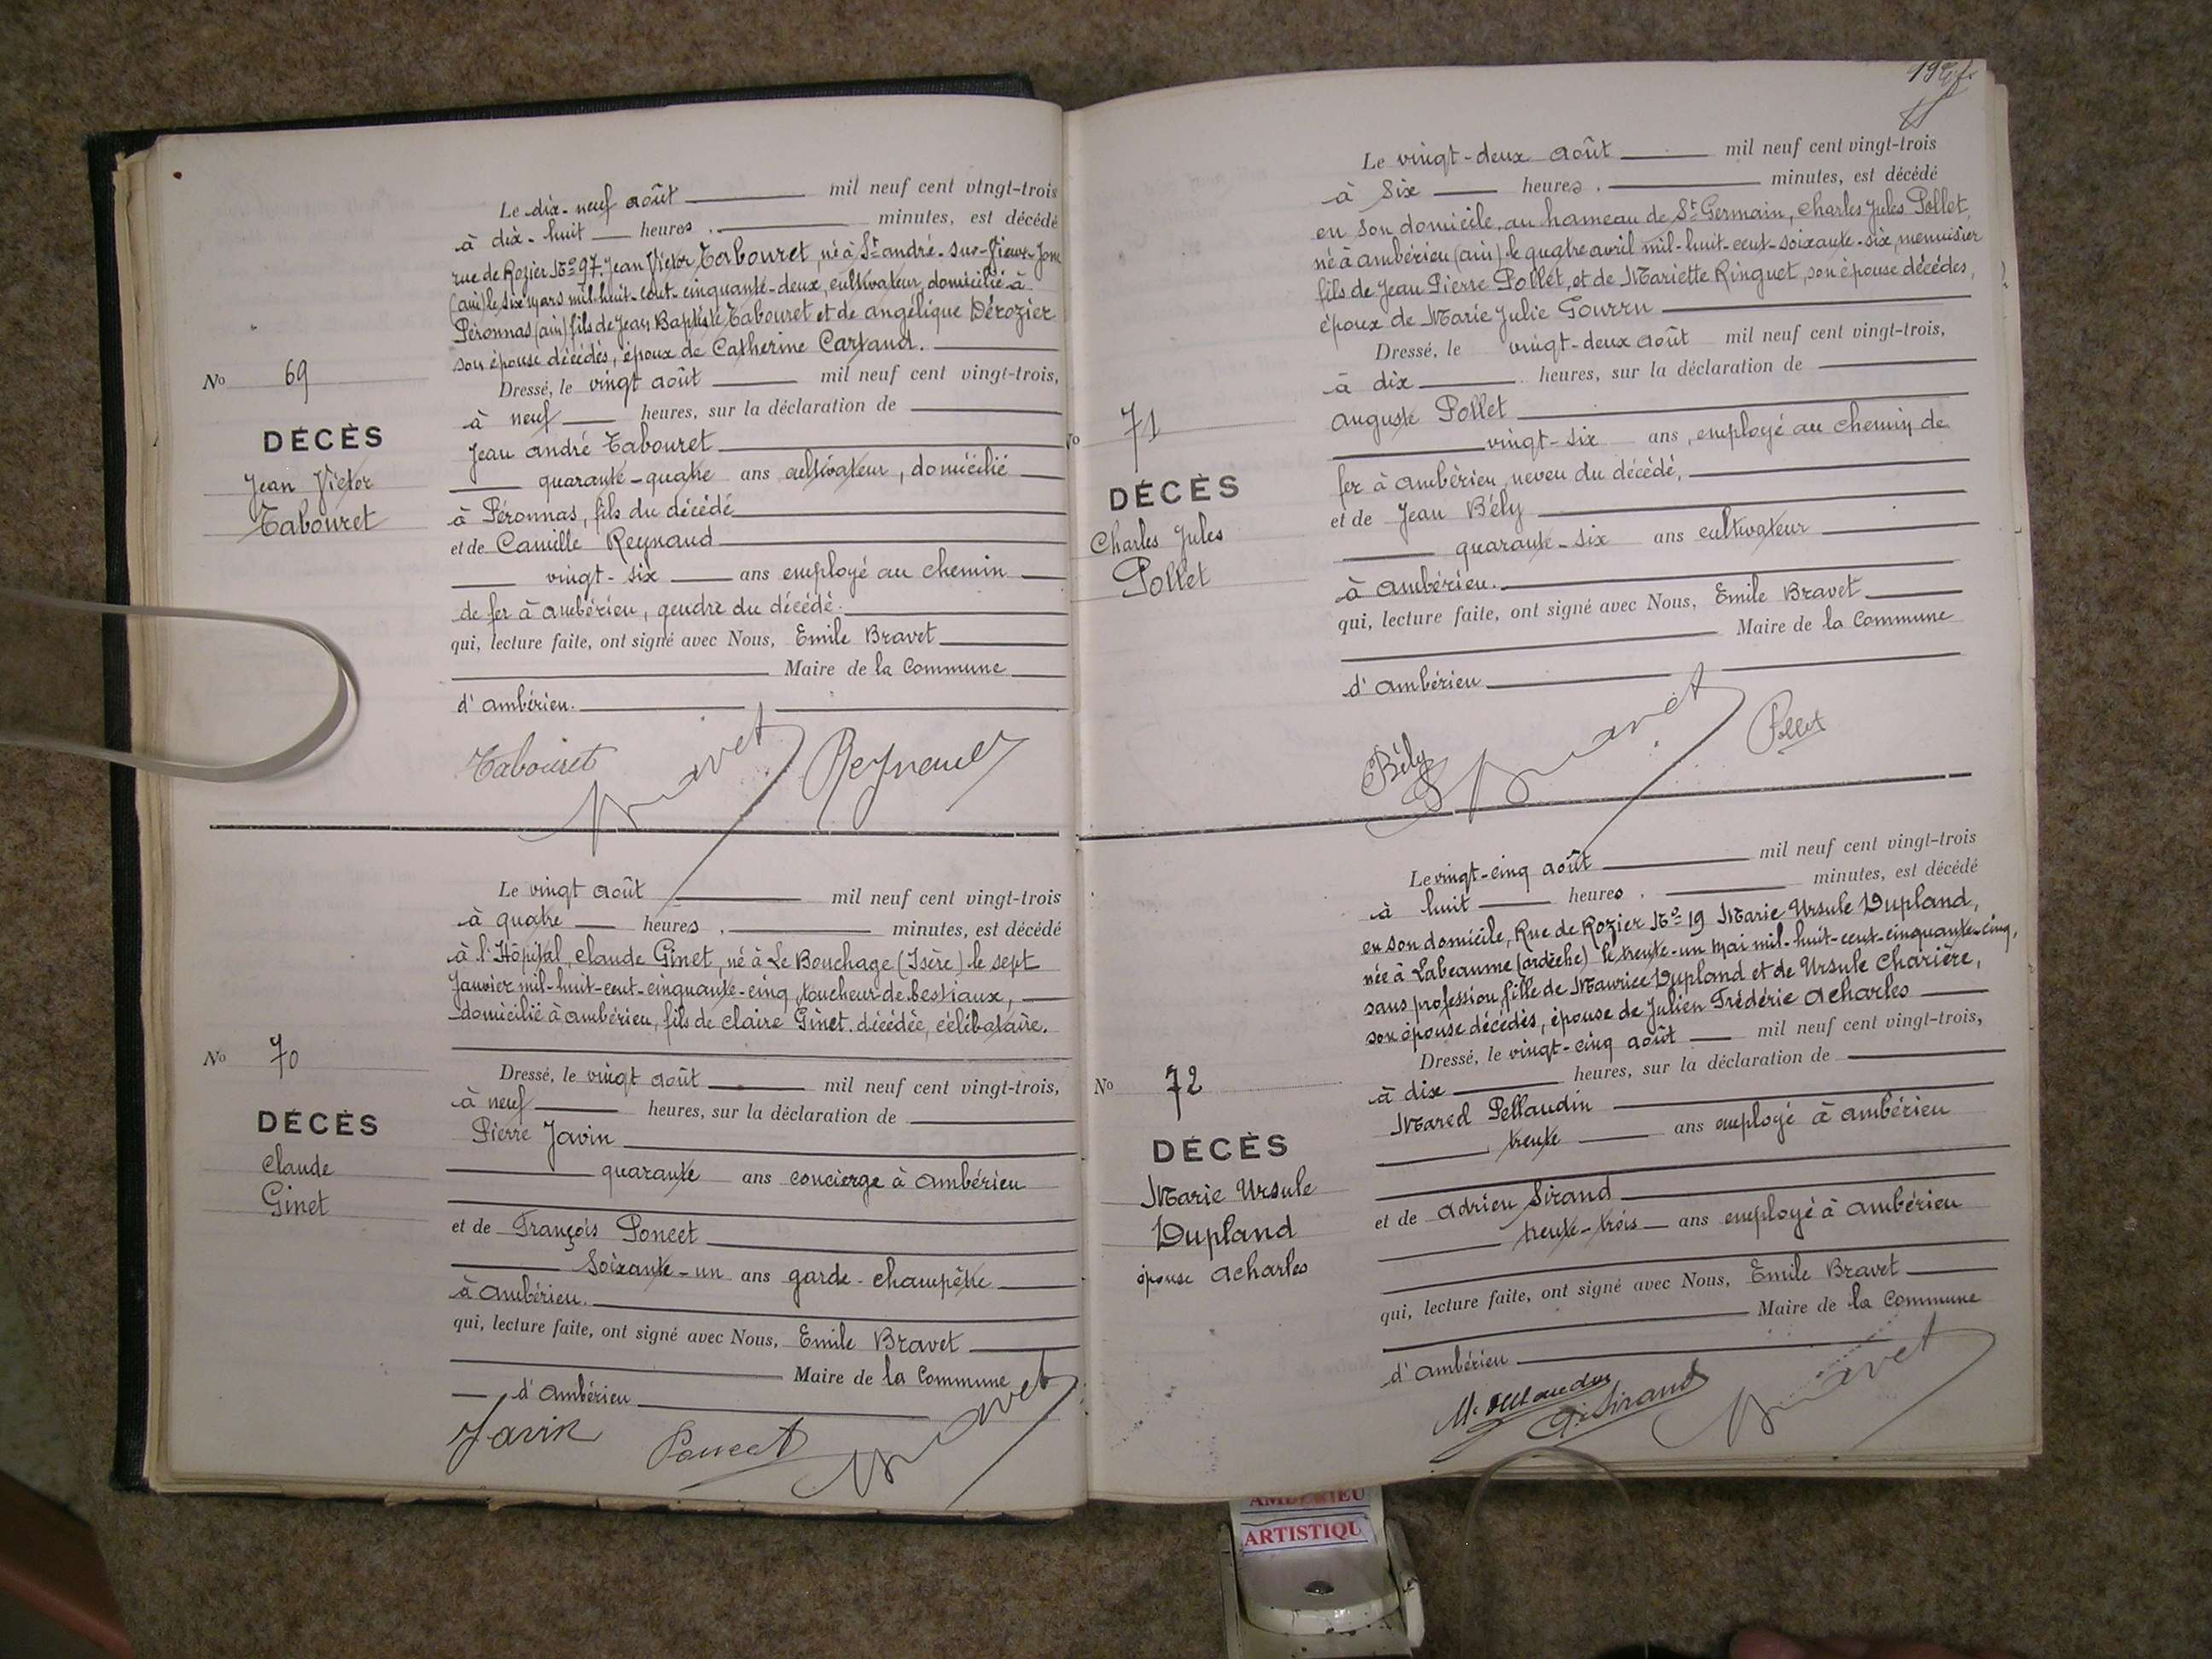 Le dix-neuf août mil neuf cent vingt-trois
à dix-huit heures minutes, est décédé
rue de Rozier No 97 Jean Victor Tabouret, né à St andré-sur-Vieux-Jonc
(ain) le six mars mil-huit-cent-cinquante-deux, cultivateur, domicilié à
Péronnas (ain) fils de Jean Baptiste Tabouret et de angélique Dérozier
son épouse décédés, époux de Catherine Cartand.
No 69
Dressé, le vingt août mil neuf cent vingt-trois,
à neuf heures, sur la déclaration de
DÉCÈS
Jean andré Tabouret
Jean Victor
quarante-quatre ans cultivateur, domicilié
Tabouret
à Péronnas, fils du décédé
et de Camille Reynaud
vingt-six ans employé au chemin
de fer à ambérieu, gendre du décédé.
qui, lecture faite, ont signé avec Nous, Emile Bravet
Maire de la Commune
d'ambérieu.
Tabouret Bravet Reynaud
Le vingt août mil neuf cent vingt-trois
à quatre heures minutes, est décédé
à l'Hôpital, claude Ginet, né à Le Bouchage (Isère) le sept
Janvier mil-huit-cent-cinquante-cinq, toucheur de bestiaux,
domicilié à ambérieu, fils de claire Ginet décédée, célibataire.
No 70
Dressé, le vingt août mil neuf cent vingt-trois,
à neuf heures, sur la déclaration de
DÉCÈS
Pierre Javin
claude
quarante ans concierge à ambérieu
Ginet
et de François Poncet
Soixante-un ans garde-champêtre
à ambérieu.
qui, lecture faite, ont signé avec Nous, Emile Bravet
Maire de la Commune
d'ambérieu
Javin Poncet Bravet
Le vingt-deux août mil neuf cent vingt-trois
à Six heures minutes, est décédé
en son domicile, au hameau de St Germain, Charles Jules Pollet,
né à ambérieu (ain) le quatre avril mil-huit-cent-soixante-six, menuisier
fils de Jean Pierre Pollet, et de Mariette Ringuet, son épouse décédés,
époux de Marie Julie Gourru
Dressé, le vingt-deux août mil neuf cent vingt-trois,
à dix heures, sur la déclaration de
No 71
auguste Pollet
vingt-six ans, employé au chemin de
DÉCÈS
fer à ambérieu, neveu du décédé,
et de Jean Bély
Charles Jules
quarante-six ans cultivateur
Pollet
à ambérieu.
qui, lecture faite, ont signé avec Nous, Emile Bravet
Maire de la Commune
d'ambérieu
Bély Bravet Pollet
Le vingt-cinq août mil neuf cent vingt-trois
à huit heures minutes, est décédé
en son domicile, Rue de Rozier No 19 Marie Ursule Dupland,
née à Labeaume (ardèche) le trente-un mai mil-huit-cent-cinquante-cinq,
sans profession, fille de Maurice Dupland et de Ursule Charière,
son épouse décédés, épouse de Julien Frédéric acharles
Dressé, le vingt-cinq août mil neuf cent vingt-trois,
No 72
à dix heures, sur la déclaration de
Marcel Pellaudin
DÉCÈS
trente ans employé à ambérieu
Marie Ursule
et de adrien Sirand
Dupland
trente-trois ans employé à ambérieu
épouse acharles
qui, lecture faite, ont signé avec Nous, Emile Bravet
Maire de la Commune
d'ambérieu
Bravet
AMBERIEU
ARTISTIQU